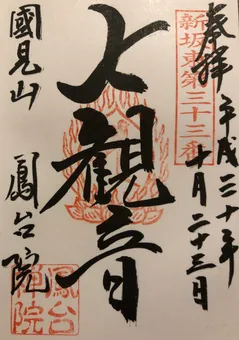 奉拝 平成三十年
十月二十三日
新坂東第三十三番
七観音
國見山 鳳台院
鳳台禅院